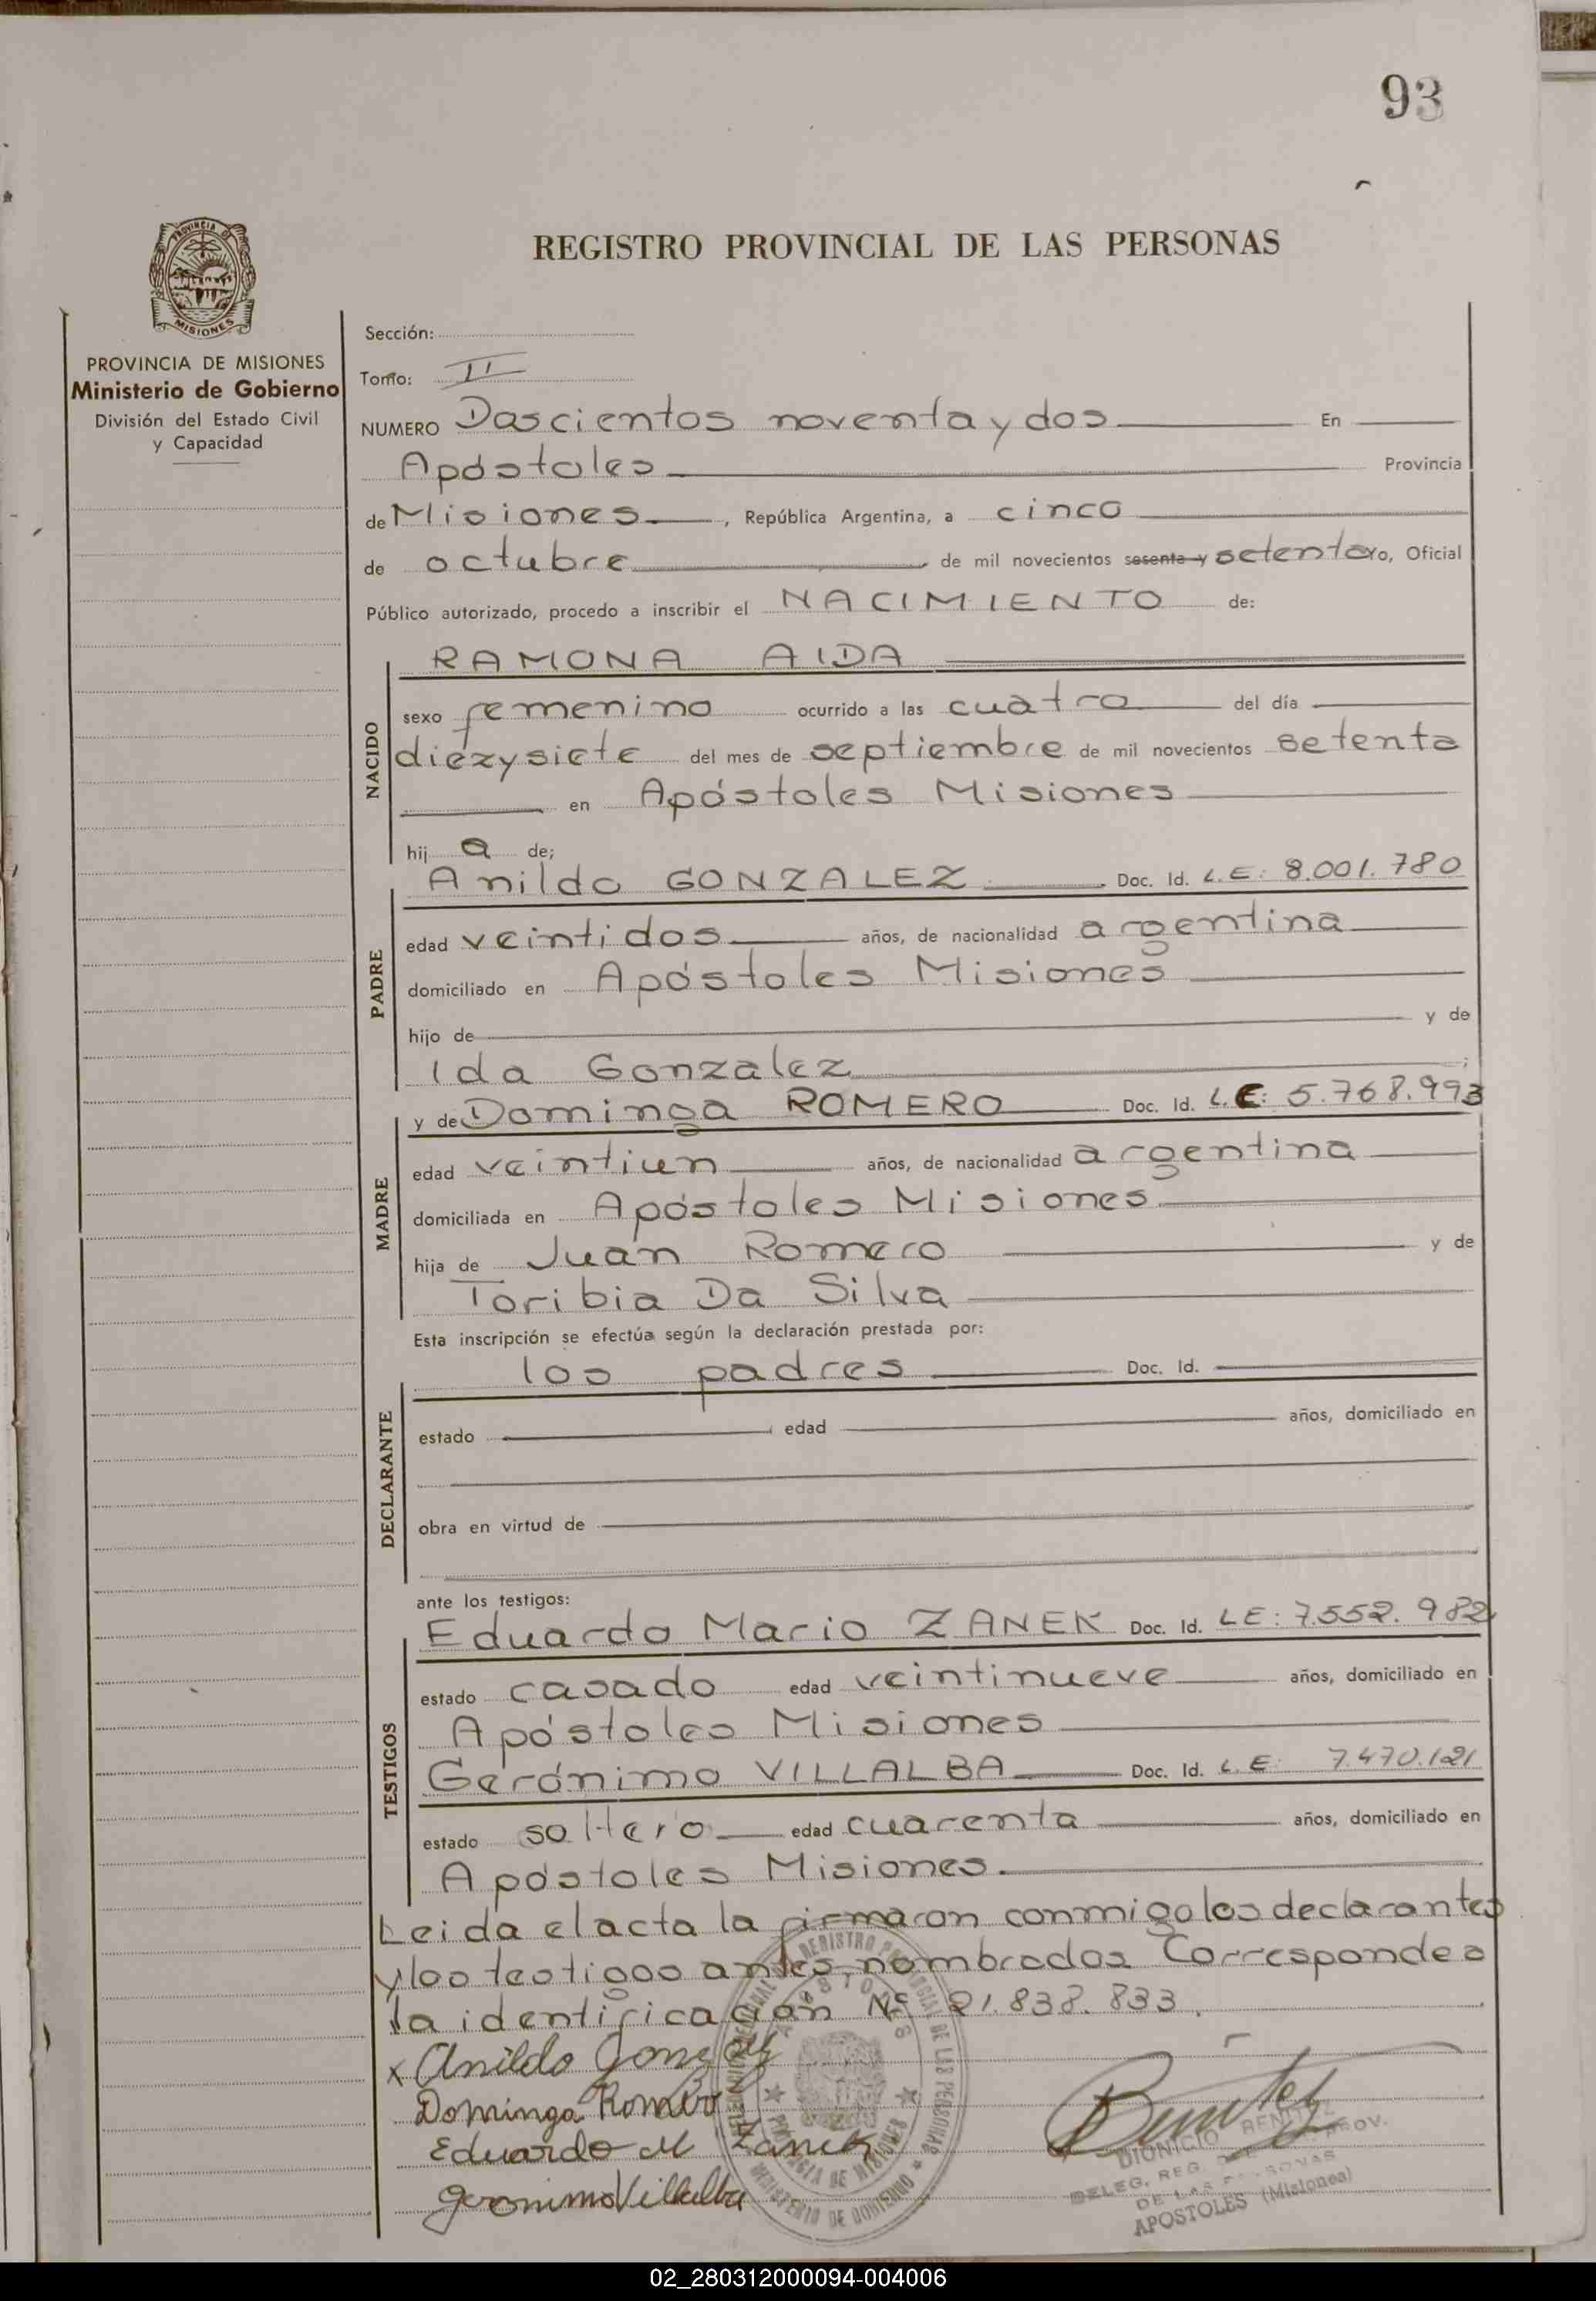 93
REGISTRO PROVINCIAL DE LAS PERSONAS
PROVINCIA DE MISIONES
PROVINCIA DE MISIONES
Ministerio de Gobierno
División del Estado Civil
y Capacidad
Sección:
Tomo: II
NUMERO Doscientos noventa y dos En
Apóstoles Provincia
de Misiones , República Argentina, a cinco
de octubre de mil novecientos sesenta y setenta yo, Oficial
Público autorizado, procedo a inscribir el NACIMIENTO de:
NACIDO
RAMONA AIDA
sexo femenino ocurrido a las cuatro del día
diezysiete del mes de septiembre de mil novecientos setenta
en Apóstoles Misiones
hij a de;
PADRE
Anildo GONZALEZ Doc. Id. L.E: 8.001.780
edad veintidos años, de nacionalidad argentina
domiciliado en Apóstoles Misiones
hijo de y de
Ida Gonzalez ;
MADRE
y de Dominga ROMERO Doc. Id. L.E: 5.768.993
edad veintiun años, de nacionalidad argentina
domiciliada en Apóstoles Misiones
hija de Juan Romero y de
Toribia Da Silva
Esta inscripción se efectúa según la declaración prestada por:
DECLARANTE
los padres Doc. Id.
estado edad años, domiciliado en
obra en virtud de
ante los testigos:
TESTIGOS
Eduardo Mario ZANEK Doc. Id. LE: 7.552.982
estado casado edad veintinueve años, domiciliado en
Apóstoles Misiones
Gerónimo VILLALBA Doc. Id. L.E: 7.470.121
estado soltero edad cuarenta años, domiciliado en
Apóstoles Misiones.
Leida el acta la firmaron conmigo los declarantes
y los testigos antes nombrados. Corresponde a
la identificación Nº 21.838.833.
x Anildo Gonzalez
Dominga Romero
Eduardo M Zanek
Geronimo Villalba
Benitez
DIONICIO BENITEZ
DELEG. REG. PROV.
DE LAS PERSONAS
APOSTOLES (Misiones)
02_280312000094-004006